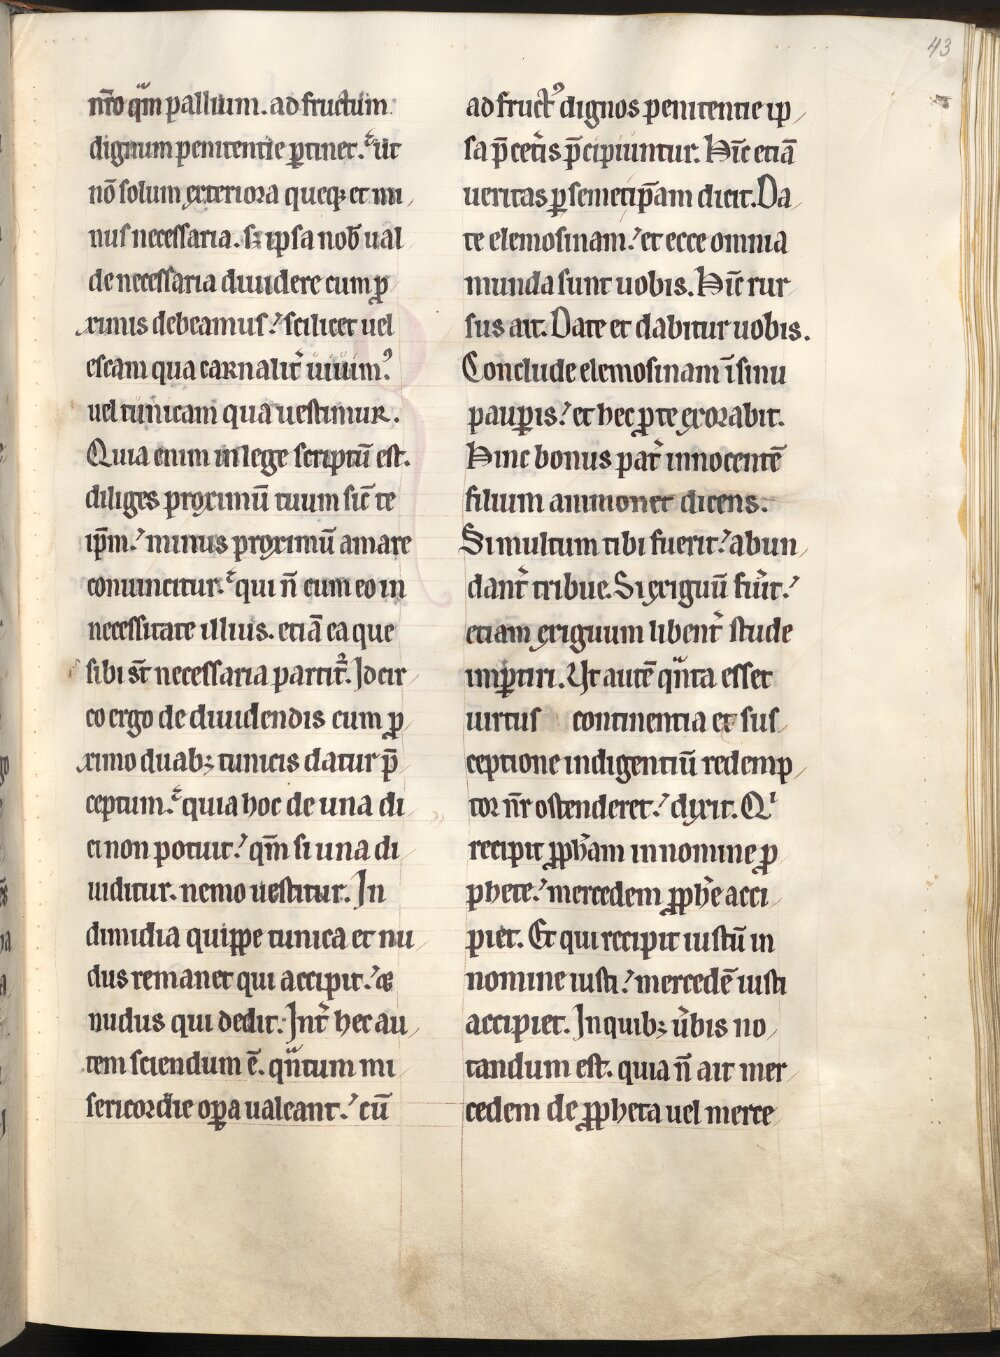 43
nr̄o qm̄ pallium. ad fructum
dignum penitentie ꝑtinet. ut
nō solum exteriora queq; et mi
nus necessaria. sꝫ ipsa nob̄ ual
de necessaria diuidere cum ꝓ
ximis debeamus? scilicet uel
escam qua carnalit̄ uiuim᾽
uel tunicam qua uestimur.
Quia enim in lege scriptū est.
diliges proximū tuum sic̄ te
ip̄m? minus proximū amare
conuincitur. qui n̄ cum eo in
necessitate illius. etiā ea que
sibi st̄ necessaria partit᷑. Idcir
co ergo de diuidendis cum ꝓ
ximo duabꝫ tunicis datur p̄
ceptum. quia hoc de una di
ci non potuit? qm̄ si una di
uiditur. nemo uestitur. In
dimidia quippe tunica et nu
dus remanet qui accipit? &
nudus qui dedit. Int̄ hec au
tem sciendum ē. qn̄tum mi
sericordie oꝑa ualeant? cū
ad fruct᾽ dignos penitentie ip
sa p̄ cet̄is p̄cipiuntur. Hīc etiā
ueritas ꝑ semetip̄am dicit. Da
te elemosinam? et ecce omnia
munda sunt uobis. Hīc rur
sus ait. Date et dabitur uobis.
Conclude elemosinam ī sinu
pauꝑis? et hec ꝓ te exorabit.
Hinc bonus pat̄ innocentē
filium ammonet dicens.
Si multum tibi fuerit? abun
dant̄ tribue. Si exiguū fu̾it?
etiam exiguum libent̄ stude
imꝑtiri. Ut autē qn̄ta esset
uirtus continentia et sus
ceptione indigentiū redemp
tor nr̄ ostenderet? dixit. Qⁱ
recipit ꝓph̄am in nomine ꝓ
phete? mercedem ꝓph̄e acci
piet. Et qui recipit iustū in
nomine iusti? mercedē iusti
accipiet. In quibꝫ u̾bis no
tandum est. quia n̄ ait mer
cedem de ꝓpheta uel merce